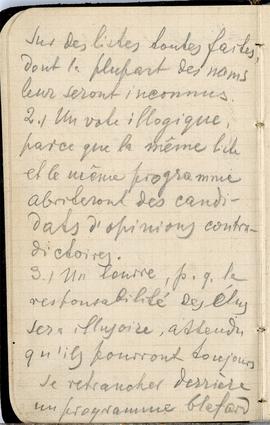 sur des listes toutes faites,
dont la plupart des noms
leur seront inconnus.
2.) Un vote illogique,
parce que la même liste
et le même programme
abriteront des candi-
dats d'opinions contra-
dictoires.
3.) Un leurre, p. q. la
responsabilité des élus
sera illusoire, attendu
qu'ils pourront toujours
se retrancher derrière
un programme blafard